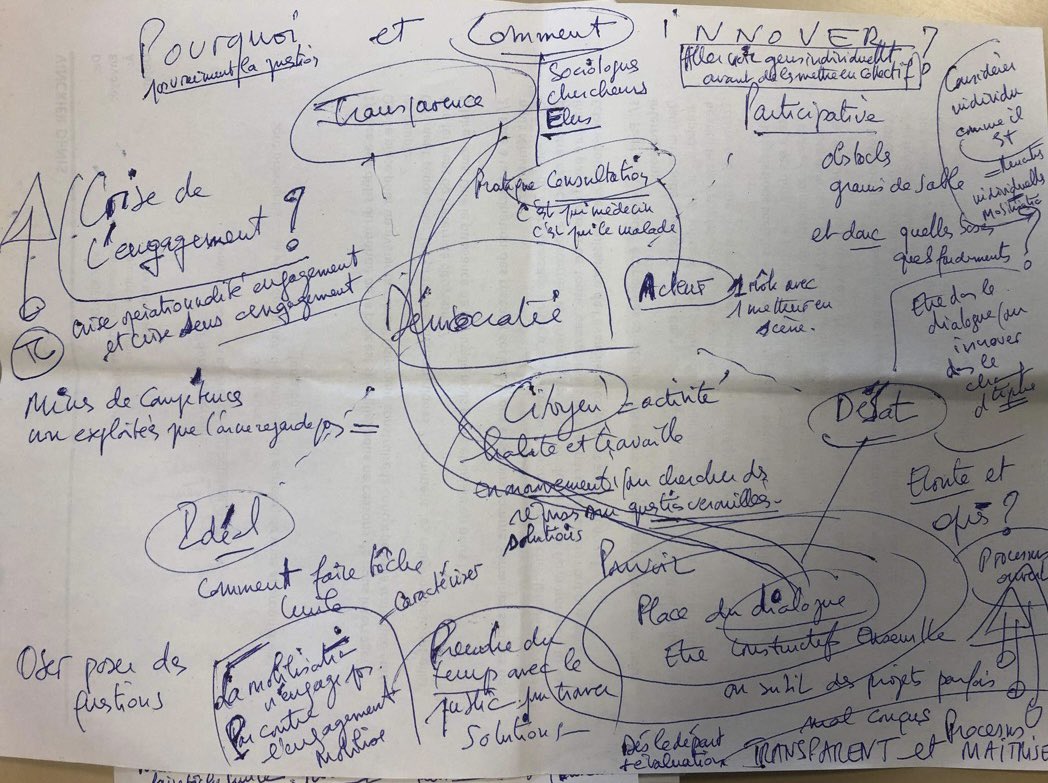 Pourquoi et Comment INNOVER ?
pourquoiment la question
Aller voir gens individuellemt
avant de les mettre en collectif
Participative
Sociologues
chercheurs
Elus
Transparence
Considérer
individu
comme il
st
individuelles
obstacls
grains de sable
et donc quelles bases
quels fondements ?
Pratique Consultation
c'est qui médecin
c'est qui le malade
Acteur 1 rôle avec
1 metteur en
scène.
Crise de
l'engagement ?
Crise opérationnalité engagement
et crise sens engagement
TC
Démocratie
Etre ds le
dialogue/ou
innover
ds le
Mines de Compétences
non exploitées que l'on ne regarde pas
Citoyen = activité
habite et travaille
en mouvement/ou chercher ds
solutions
Débat
Ecoute et
après ?
Idéal
comment faire tâche
Caractériser
Pouvoir
Place du dialogue
Etre Constructif ensemble
ou subit des projets parfois
mal conçus
Processus
Oser poser des
questions
La mobilisation
n'engage pas.
Par contre
l'engagement
mobilise
Prendre du
temps avec le
public
Solutions
Dès le départ
évaluation
TRANSPARENT et
Processus
MAITRISE